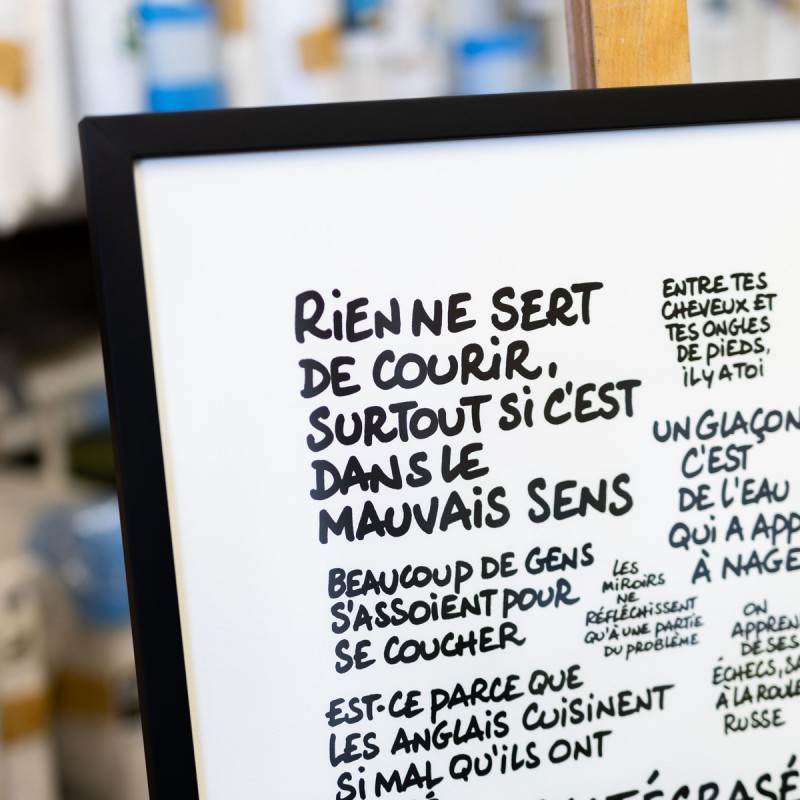 RiEN NE SERT
DE COURiR,
SURTOUT Si C'EST
DANS LE
MAUVAiS SENS
ENTRE TES
CHEVEUX ET
TES ONGLES
DE PiEDS,
iL Y A TOi
UN GLAÇON
C'EST
DE L'EAU
QUi A APP
À NAGE
BEAUCOUP DE GENS
S'ASSOIENT POUR
SE COUCHER
LES
MiROiRS
NE
RÉFLÉCHISSENT
QU'À UNE PARTIE
DU PROBLÈME
ON
APPREN
DE SES
ÉCHECS, SA
À LA ROULE
RUSSE
EST-CE PARCE QUE
LES ANGLAiS CUiSiNENT
Si MAL QU'iLS ONT